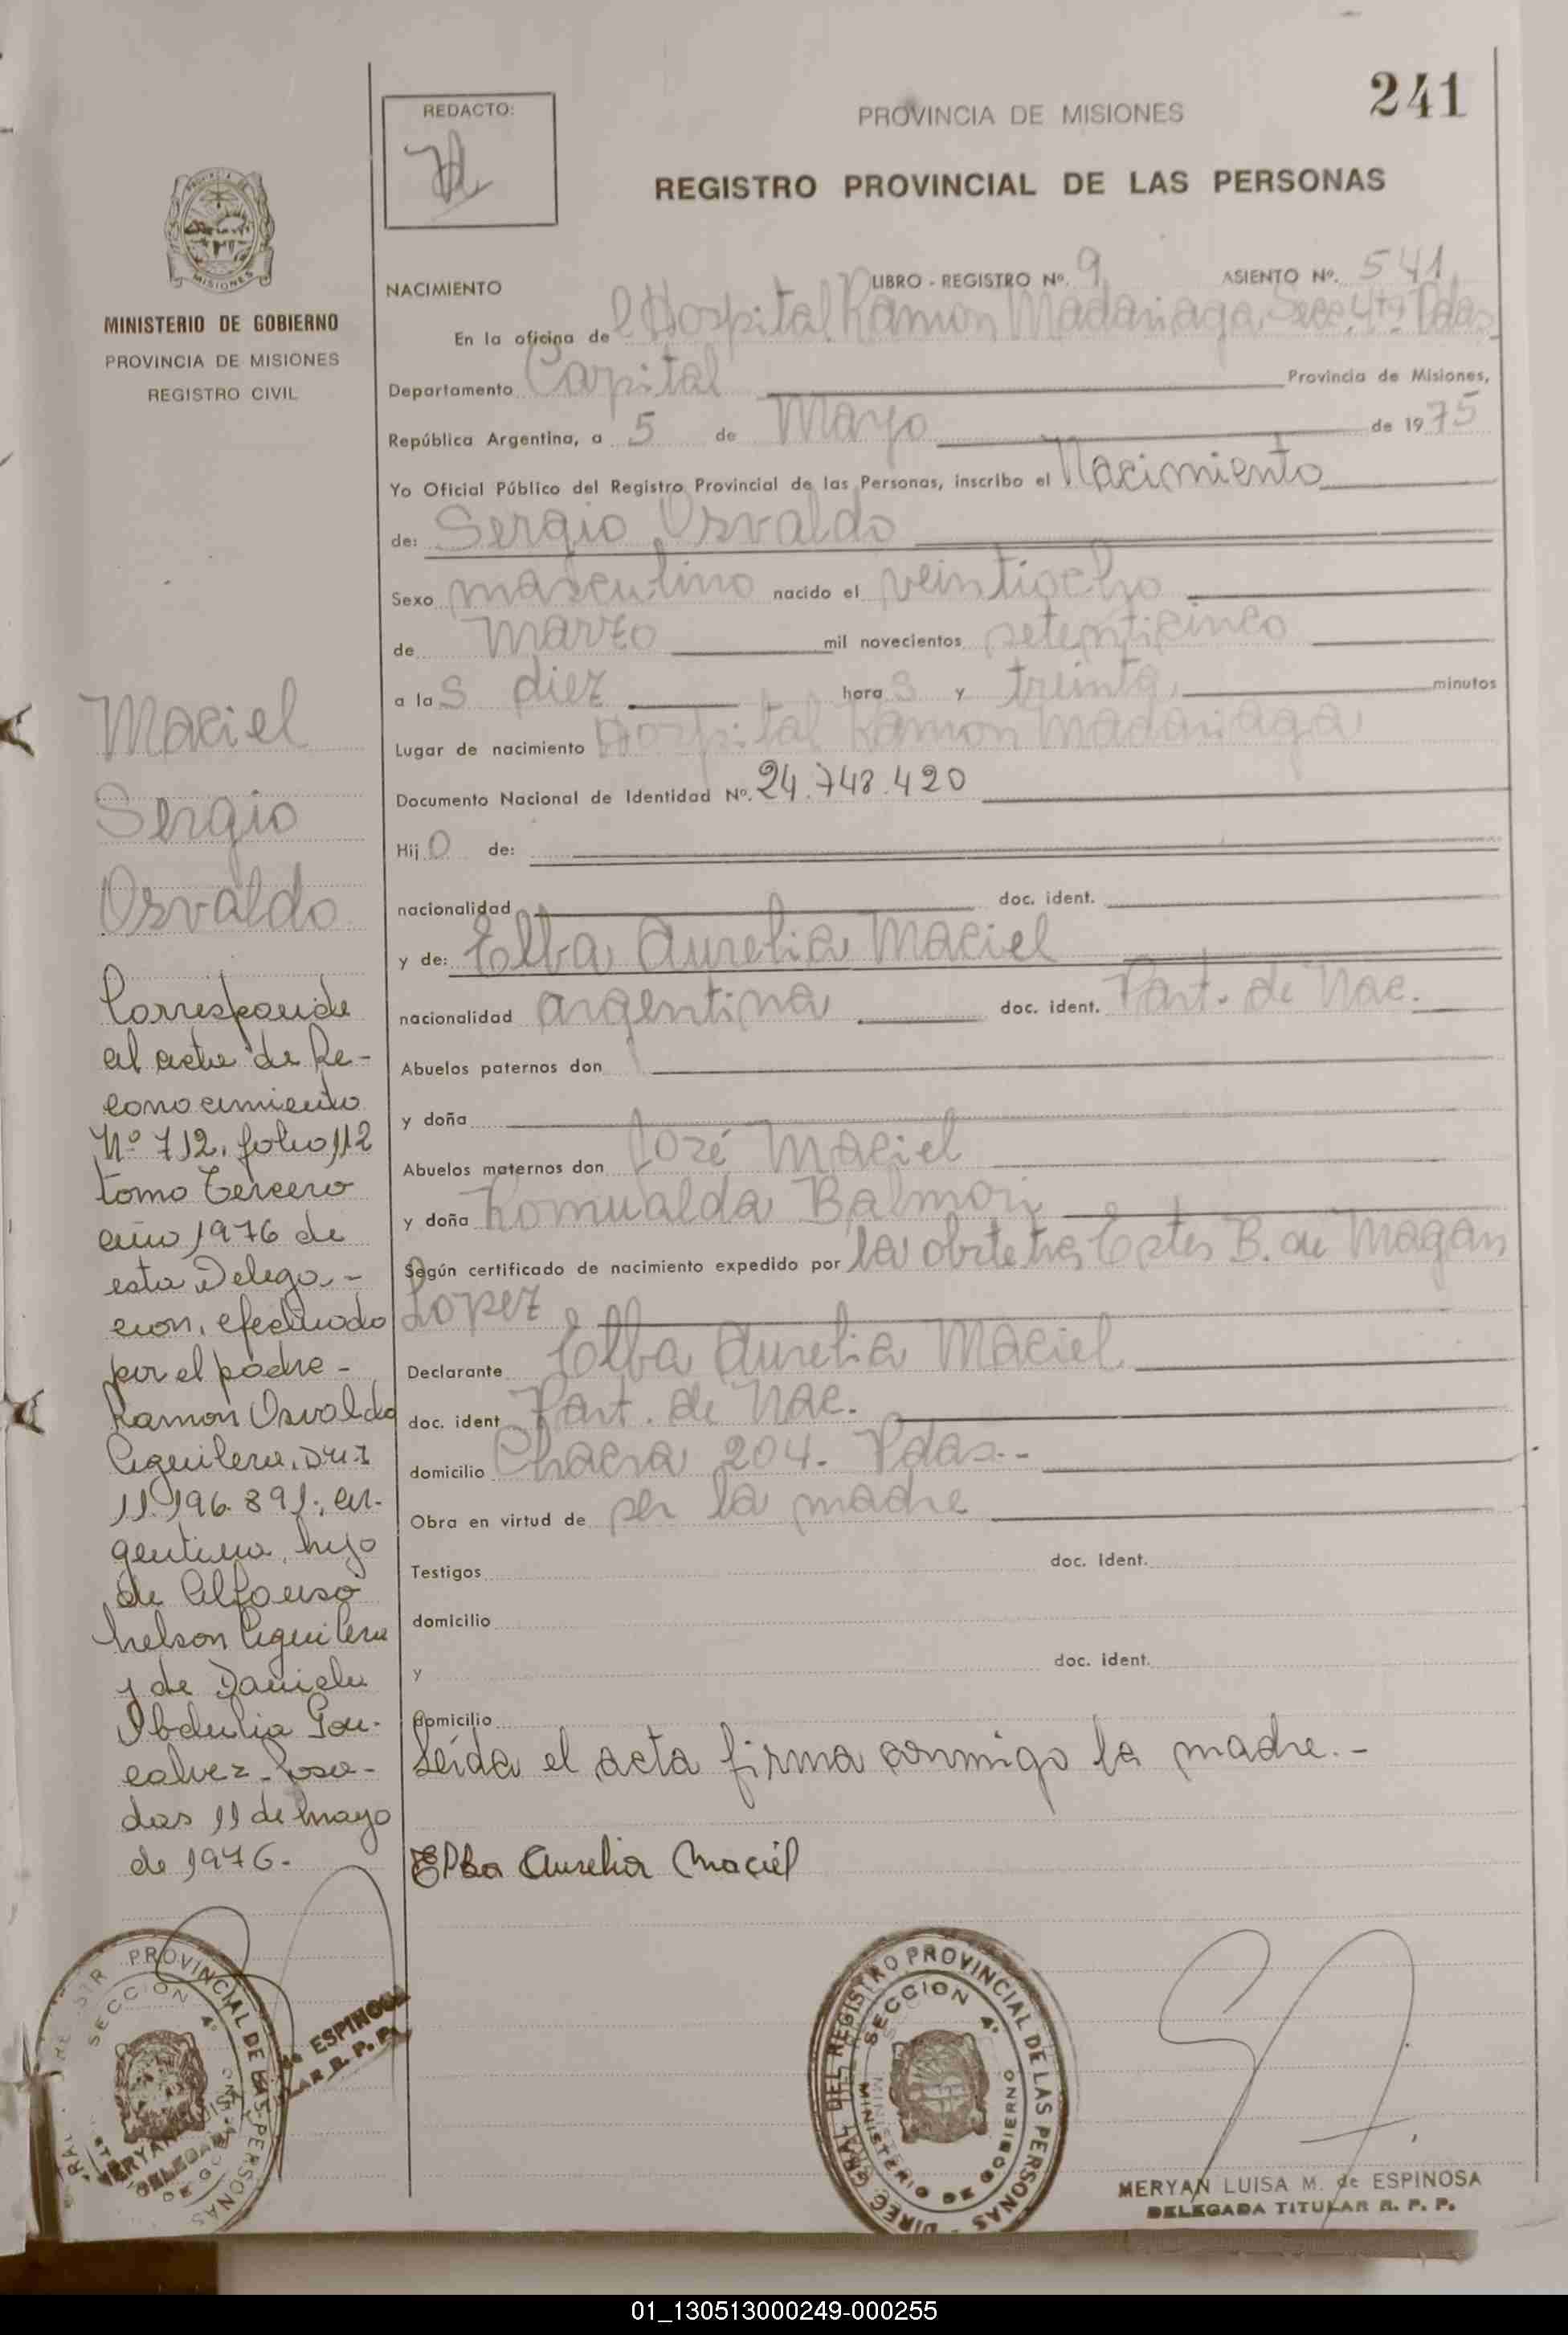 241
REDACTO:
PROVINCIA DE MISIONES
REGISTRO PROVINCIAL DE LAS PERSONAS
MISIONES
MINISTERIO DE GOBIERNO
PROVINCIA DE MISIONES
REGISTRO CIVIL
NACIMIENTO LIBRO - REGISTRO Nº. 9 ASIENTO Nº. 541
En la oficina de l Hospital Ramon Madariaga, Secc. 4ta Pdas
Departamento Capital Provincia de Misiones,
República Argentina, a 5 de Mayo de 1975
Yo Oficial Público del Registro Provincial de las Personas, inscribo el Nacimiento
de: Sergio Osvaldo
Sexo masculino nacido el veintiocho
de marzo mil novecientos setenticinco
a las diez horas y treinta, minutos
Lugar de nacimiento Hospital Ramon Madariaga
Documento Nacional de Identidad Nº. 24.748.420
Hijo de:
nacionalidad doc. ident.
y de: Elba Aurelia Maciel
nacionalidad argentina doc. ident. Part. de Nac.
Abuelos paternos don
y doña
Abuelos maternos don José Maciel
y doña Romualda Balmori
Según certificado de nacimiento expedido por la obstetra Ester B. de Magan
Lopez
Declarante Elba Aurelia Maciel
doc. ident Part. de Nac.
domicilio Chacra 204. Pdas.-
Obra en virtud de ser la madre
Testigos doc. ident.
domicilio
y doc. ident.
domicilio
Leída el acta firma conmigo la madre.-
Elba Aurelia Maciel
Maciel
Sergio
Osvaldo
Corresponde
al acta de Re-
conocimiento
Nº 712, folio 112
tomo Tercero
año 1976 de
esta Delega-
cion, efectuado
por el padre -
Ramon Osvaldo
Aguilera, DNI
11.196.891; ar-
gentino, hijo
de Alfonso
Nelson Aguilera
y de Daniela
Obdulia Gon-
calvez - Posa-
das 11 de mayo
de 1976.-
PROVINCIAL DE LAS PERSONAS
SECCION 4º
de ESPINOSA
DIREC. GRAL. DEL REGISTRO PROVINCIAL DE LAS PERSONAS
SECCION 4º
MINISTERIO DE GOBIERNO
MERYAN LUISA M. de ESPINOSA
DELEGADA TITULAR R. P. P.
01_130513000249-000255